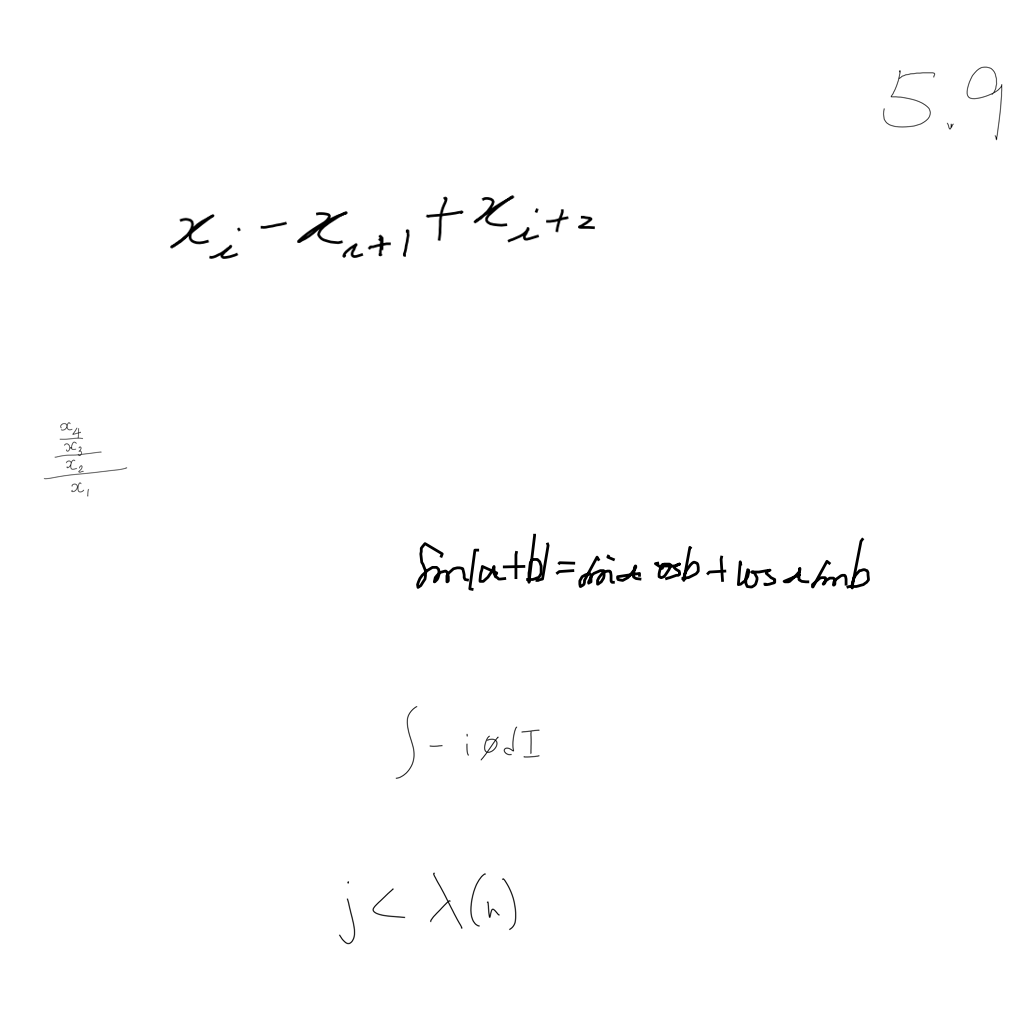 5.9
x_i - x_{i+1} + x_{i+2}
\frac{\frac{\frac{x_4}{x_3}}{x_2}}{x_1}
sin(a+b) = sin a cos b + cos a sin b
∫ - i ϕ d I
j < λ(n)